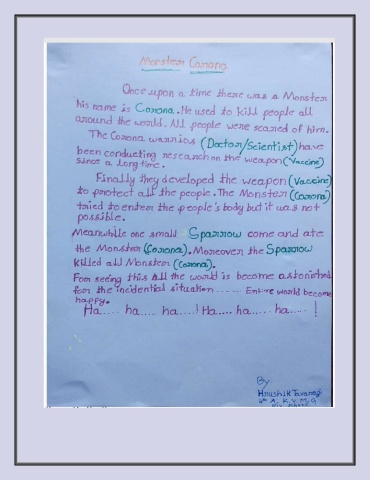 Monster Corona
Once upon a time there was a Monster
his name is Corona. He used to kill people all
around the world. All people were scared of him.
The Corona warriors (Doctor/Scientist) have
been conducting research on the weapon (Vaccine)
since a long time.
Finally they developed the weapon (Vaccine)
to protect all the people. The Monster (Corona)
tried to enter the people's body but it was not
possible.
Meanwhile one small Sparrow come and ate
the Monster (Corona). Moreover the Sparrow
killed all Monster (Corona).
For seeing this all the world is become astonished
for the incidential situation ...... Entire world become
happy.
Ha..... ha.... ha....! Ha.... ha..... ha.... !
By